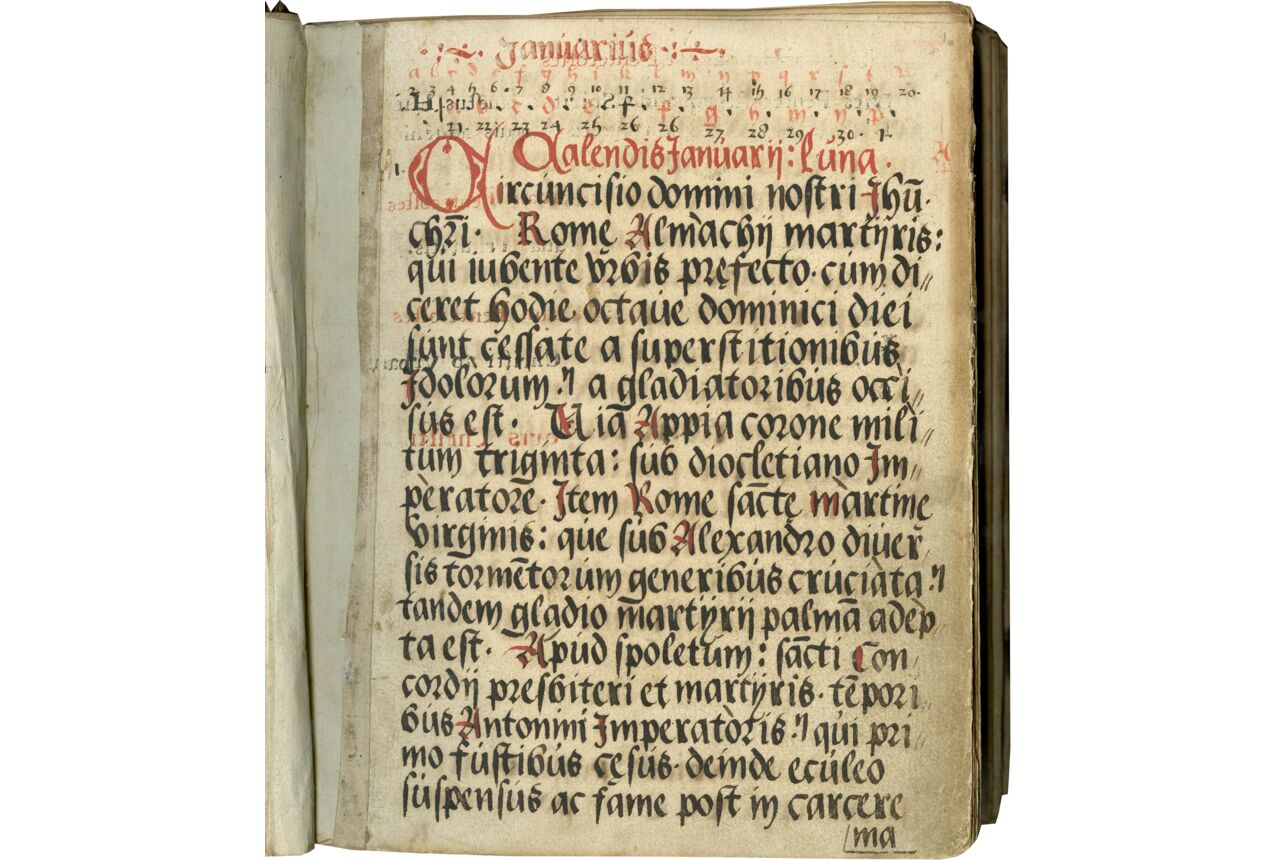 Januarius
a b c d e f g h i k l m n p q r s t u
2 3 4 5 6 7 8 9 10 11 12 13 14 15 16 17 18 19 20
21 22 23 24 25 26 26 27 28 29 30 1
Kalendis Januarij: luna.
1. Circuncisio domini nostri Jhū.
chr̄i. Romę Almachij martyris:
qui iubente vrbis pręfecto. cum di//
ceret hodie octaue dominici diei
sunt cessate a superstitionibus
Jdolorum. a gladiatoribus occi//
sus est. Via Appia corone mili//
tum triginta: sub diocletiano Jm//
peratore. Jtem Rome sāctę martine
virginis: que sub Alexandro diuer//
sis tormētorum generibus cruciata.
tandem gladio martyrij palmā adep
ta est. Apud spoletum: sācti Con//
cordij presbiteri et martyris. tēpori
bus Antonini Jmperatoris. qui pri//
mo fustibus cęsus. deinde eculeo
suspensus ac fame post in carcere
ma